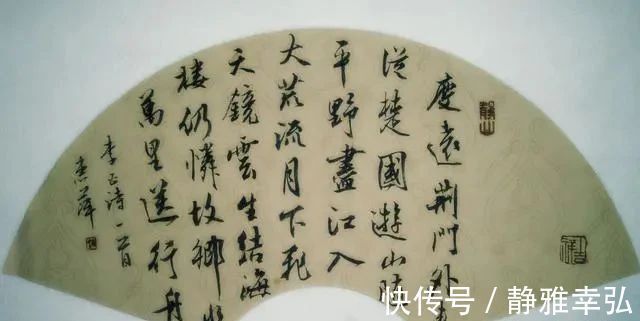 度遠荊門外来
從楚國遊山隨
平野盡江入
大荒流月下飛
天鏡雲生結海
樓仍憐故鄉水
萬里送行舟
李白詩一首
快传号 / 静雅幸弘